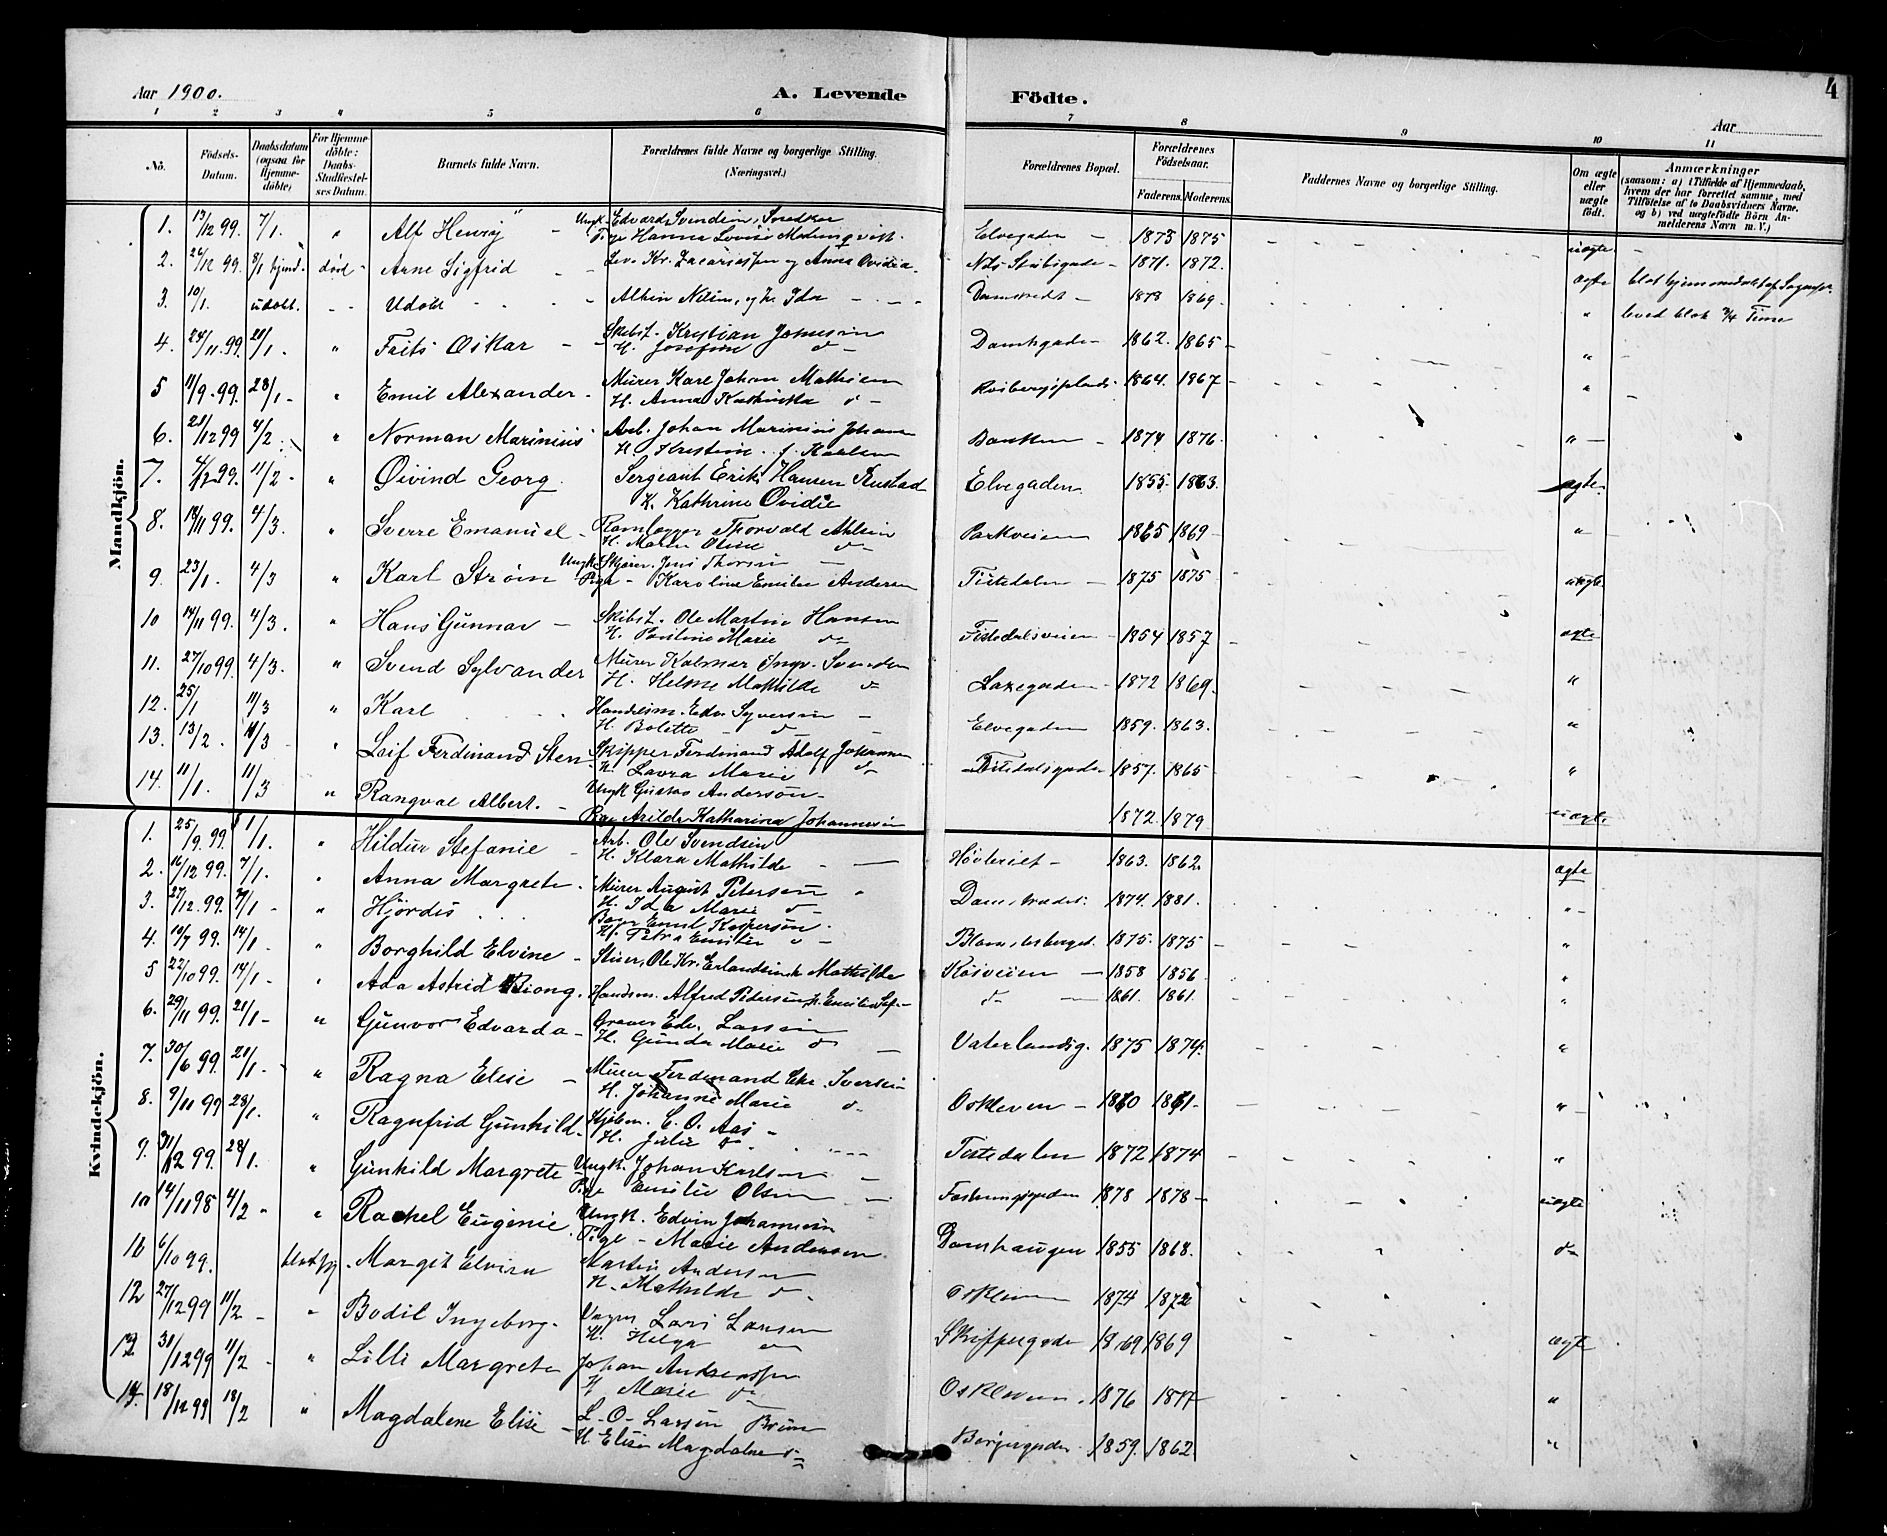 4
Aar 1900.
A. Levende Födte.
Aar
1 2 3 4 5 6 7 8 9 10 11
No. Födsels-Datum. Daabsdatum (ogsaa for Hjemme-döbte) For Hjemme-döbte: Daabs-Stadfæstel-ses Datum. Barnets fulde Navn. Forældrenes fulde Navne og borgerlige Stilling. (Næringsvei.) Forældrenes Bopæl. Forældrenes Födselsaar. Faderens. Moderens. Faddernes Navne og borgerlige Stilling. Om ægte eller uægte födt. Anmærkninger (saasom: a) i Tilfælde af Hjemmedaab, hvem der har forrettet samme, med Tilföielse af to Daabsvidners Navne, og b) ved uægtefödte Börn An-melderens Navn m. V.)
Mandkjön.
1. 13/12 99. 7/1. " Alf Henry Ungk. Edvard Svendsen, Snedker Elvegaden 1873 1875 uægte
Pige Hanna Lovise
2. 26/12 99. 8/1 hjemd. død Arne Sigfrid Kr. Zacariassen og Anna Ovidia 1871. 1872. ægte
3. 10/1. udøbt. Udøbt Albin Nilsen, og H. Ida Damstredt 1873 1869. " leved blot 3/4 Time
4. 24/11 99. 21/1. " Frits Oskar Skibst. Kristian Johnsen Damhgade 1862. 1865 "
H. Josefine do
5 11/9 99. 28/1 " Emil Alexander Murer Karl Johan Mathisen 1864. 1867 "
H. Anna Kathinka do
6. 21/12 99 4/2. " Norman Marinius Arb. Johan Marinius Johans Banken 1874 1876. "
H. Kristine f. Karlsen
7. 4/12 99. 11/2 " Øivind Georg. Sergeant Erik Hansen Rustad Elvegaden 1855. 1863. ægte
H. Kathrine Ovidie
8. 18/11 99. 4/3. " Sverre Emanuel Thorvald Ahlsen Parkveien 1865 1869 "
H. Maren Olsine do
9. 23/1. 4/3 " Karl Strøm Ungk. Jens Thorsen Tistedalen 1875 1875 uægte
Pige Karoline Emilie Andersen
10 14/11 99. 4/3. " Hans Gunnar Skibst. Ole Martin Hansen Tistedalsveien 1854 1857 ægte
H. Pauline Marie do
11. 27/10 99. 4/3. " Svend Sylvander Murer Kalmar Ingv. Svendsen Laxegaden 1872 1869. "
H. Helene Mathilde do
12. 25/1 11/3 " Karl Handelsm. Edv. Syversen Elvegaden 1859. 1863. "
H. Bolette do
13. 13/2. 11/3 " Leif Ferdinand Sten Skipper Ferdinand Adolf Johannesen Tistedalsgaden 1857. 1865 "
H. Laura Marie do
14. 11/1. 11/3 " Rangval Albert. Ungk Gustav Anderson 1872. 1879 uægte
Pige Katharina Johannesen
Kvindekjön.
1. 25/9 99. 1/1. " Hildur Stefanie Arb. Ole Svendsen Høvleriet 1863. 1862. ægte
H. Klara Mathilde
2. 16/12 99. 7/1. " Anna Margrete Murer August Petersen Damstrædet 1874. 1881. "
H. Ida Marie do
3. 27/12 99. 7/1 " Hjørdis Bager Emil Kaspersen 1875. 1875 "
H. Petra Emilie do
4. 10/9 99. 14/1 " Borghild Elvine Stuer, Ole Kr. Erlandsen H. Mathilde Røsveien 1858 1856 "
5 22/10 99. 14/1 " Ada Astrid Kiong. Handsm. Alfred Petersen, H. Emilie do 1861. 1861. "
6. 29/11 99. 21/1 " Gunvor Edvarda Graver Edv. Larsen Vaterlandsg. 1875 1874. "
H. Gunda Marie do
7. 30/6 99. 21/1 " Ragna Elise Murer Ferdinand Chr. Iversen Oskleven 1860 1861 "
H. Johanne Marie do
8. 9/11 99 28/1. " Ragnfrid Gunhild Kjøbm. C. O. Aas Tistedalen 1872 1874 "
H. Julie do
9. 31/12 99. 28/1. " Gunhild Margrete Ungk. Johan Karlsen Fæstningsgaden 1878 1878 uægte
Pige Emilie Olsen
10 14/11 98 4/2 " Rachel Eugenie Ungk. Edvin Johannesen Damhaugen 1855 1868. do
Pige Marie Andersen
11 6/10 99. Margit Elvira Martin Andersen Oskleven 1874 1872
H. Mathilde do
12 27/12 99 11/2 " Bodil Ingeborg Lars Larsen Skippergade 1869 1869 ægte
H. Helga do
13. 31/12 99 11/2 " Lilli Margrete Johan Andreassen Oskleven 1876 1877 "
H Marie do
14. 18/12 99 18/2 " Magdalene Elise L. O. Larsen Bruun Borgergaden 1859. 1862. "
H. Elise Magdalene do